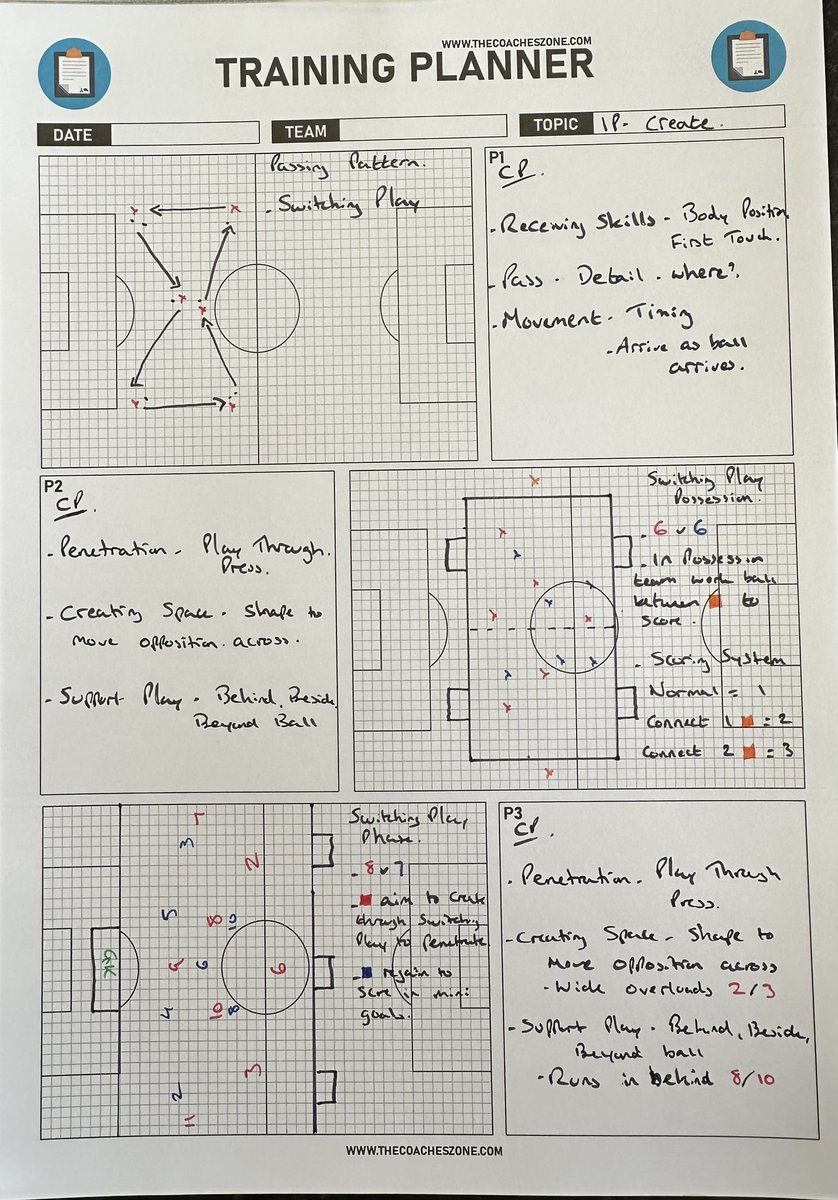 WWW.THECOACHESZONE.COM
TRAINING PLANNER
DATE
TEAM
TOPIC IP- Create.
Passing Pattern.
- Switching Play
P1
CP.
- Receiving Skills - Body Position
First Touch.
- Pass - Detail - where?
- Movement - Timing
- Arrive as ball
arrives.
P2
CP.
- Penetration - Play Through
Press.
- Creating Space - Shape to
move opposition across.
- Support Play - Behind, Beside,
Beyond Ball
Switching Play
Possession.
- 6 v 6
- In Possession
team work ball
between to
score.
- Scoring System
Normal = 1
Connect 1 = 2
Connect 2 = 3
7
3
2
5
8
10
GK
9
6
6
4
10
8
3
2
11
Switching Play
Phase.
- 8 v 7
- aim to create
through switching
play to penetrate
- regain to
score in mini
goals.
P3
CP.
- Penetration - Play Through
Press.
- Creating Space - Shape to
move opposition across
- Wide overloads 2/3
- Support Play - Behind, Beside,
Beyond ball
- Runs in behind 8/10
WWW.THECOACHESZONE.COM